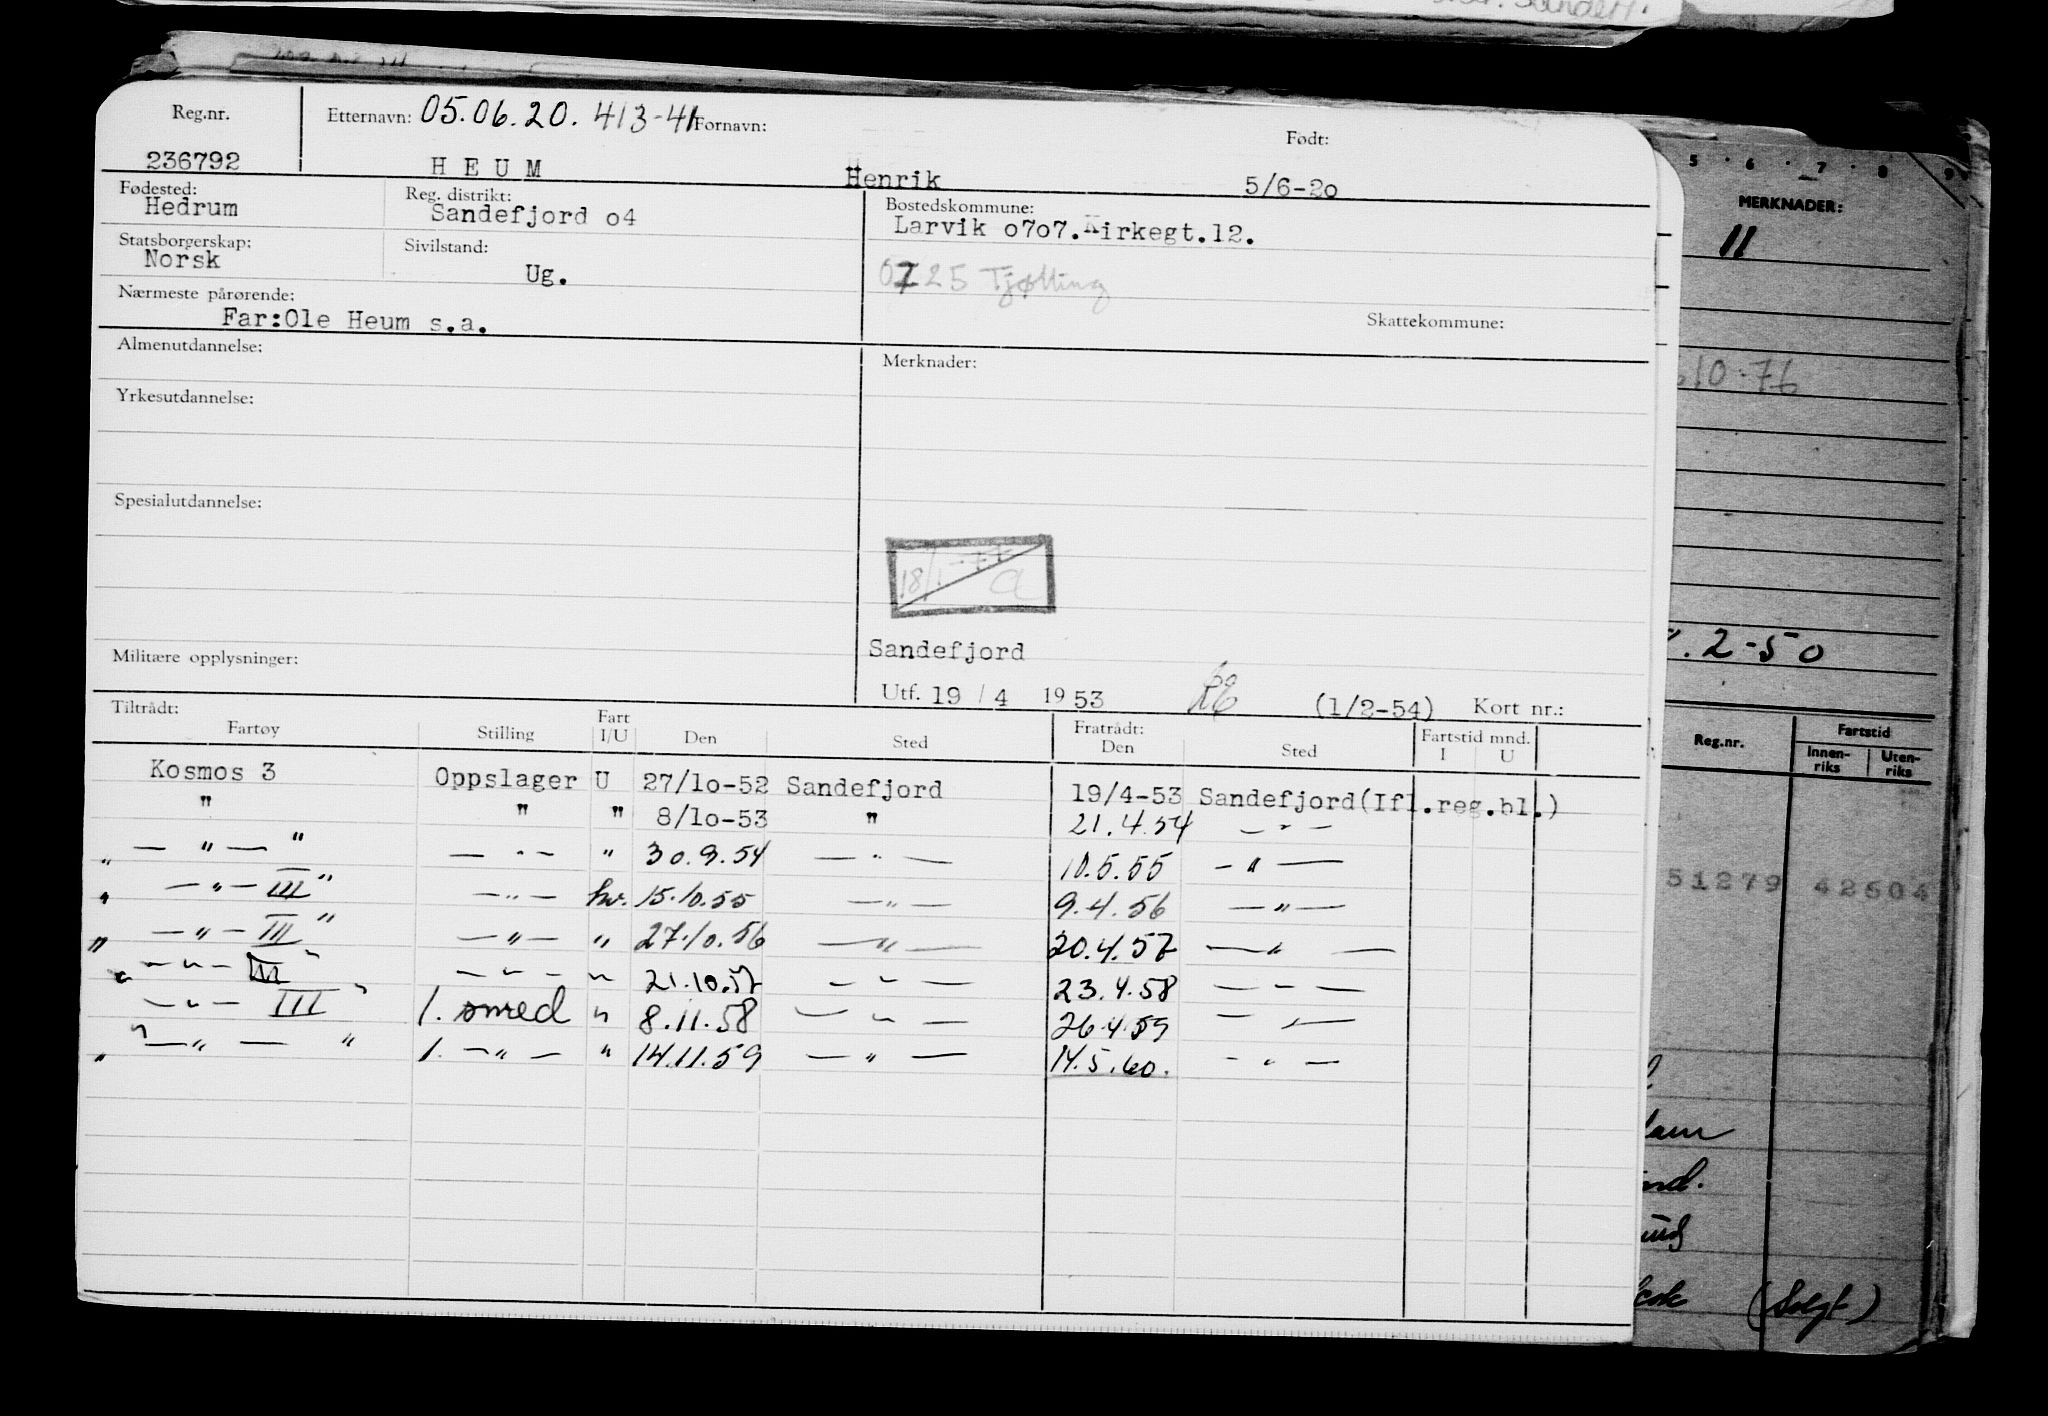 Reg.nr. Etternavn: 05.06.20. 413-41 Fornavn: Født:
236792 HEUM Henrik 5/6-20
Fødested: Reg. distrikt: Bostedskommune:
Hedrum Sandefjord 04 Larvik 0707. Kirkegt.12.
Statsborgerskap: Sivilstand:
Norsk Ug. 0725 Tjølling
Nærmeste pårørende: Skattekommune:
Far:Ole Heum s.a.
Almenutdannelse: Merknader:
Yrkesutdannelse:
Spesialutdannelse:
Sandefjord
Militære opplysninger: Utf. 19 / 4 1953 (1/2-54) Kort nr.:
Tiltrådt: Fart Fratrådt: Fartstid mnd.
Fartøy Stilling I/U Den Sted Den Sted I U
Kosmos 3 Oppslager U 27/10-52 Sandefjord 19/4-53 Sandefjord(Ifl.reg.bl.)
" " " 8/10-53 " 21.4.54 — " —
" — " — " — " — " 30.9.54 — " — 10.5.55 — " —
" — " — III " — " — hv. 15.10.55 — " — 9.4.56 — " —
" — " — III " — " — " 27.10.56 — " — 20.4.57 — " —
" — " — III " — " — " 21.10.57 — " — 23.4.58 — " —
— " — III " 1. smed " 8.11.58 — " — 26.4.59 — " —
" — " — " 1. — " — " 14.11.59 — " — 14.5.60. — " —
5 . 6 . 7 . 8 9
MERKNADER:
11
10-76
2-50
Reg.nr. Fartstid
Innen-riks Uten-riks
51279 42504
(Solgt)